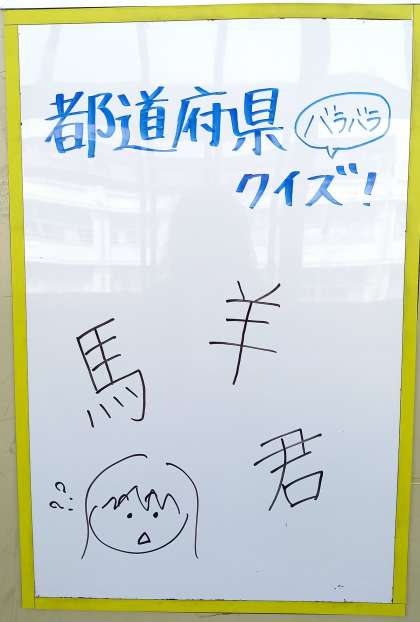 都道府県
バラバラ
クイズ!
馬
羊
君
??